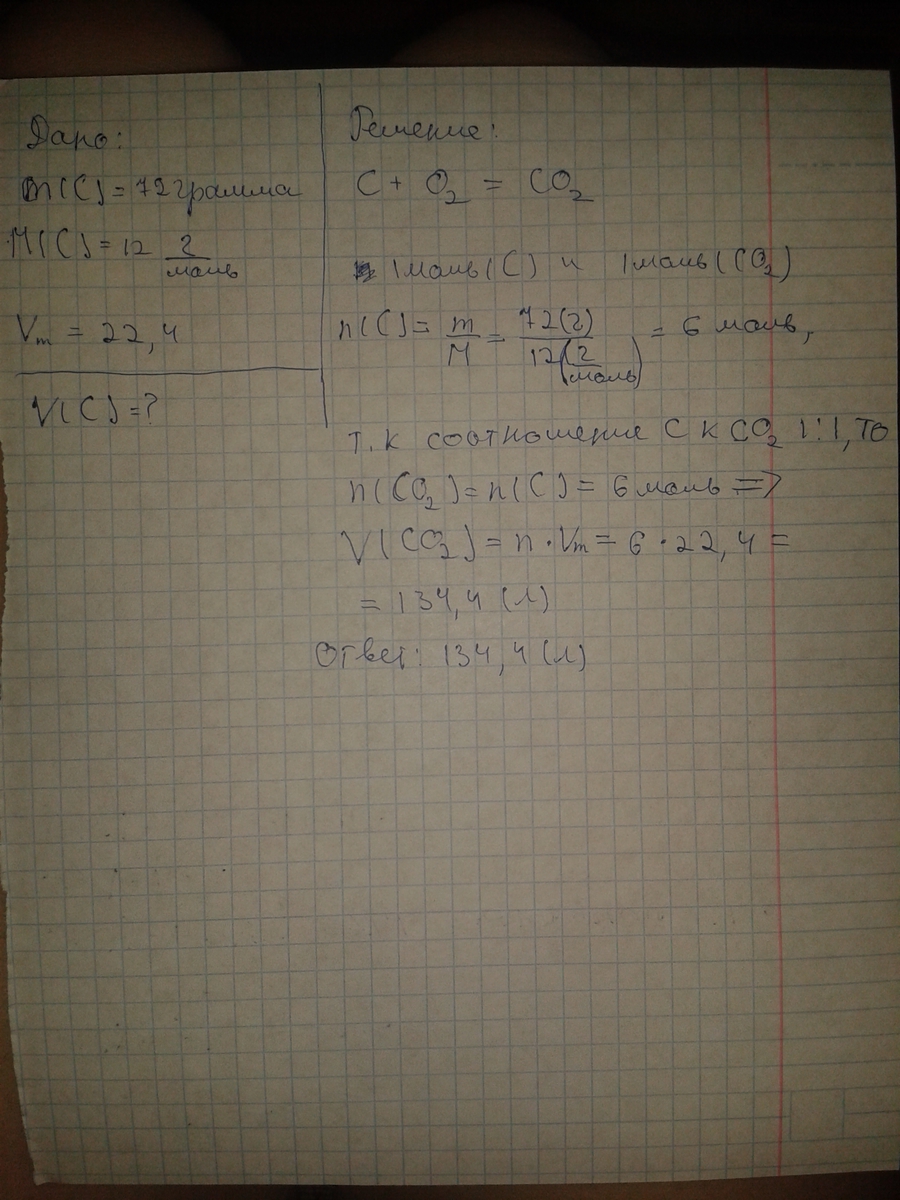 Дано:
m(C) = 72 грамма
M(C) = 12 г/моль
Vm = 22,4
V(C) = ?
Решение:
C + O₂ = CO₂
1 моль (C) и 1 моль (CO₂)
n(C) = m/M = 72(г)/12(г/моль) = 6 моль,
т.к соотношение C к CO₂ 1:1, то
n(CO₂) = n(C) = 6 моль =>
V(CO₂) = n · Vm = 6 · 22,4 =
= 134,4 (л)
Ответ: 134,4 (л)